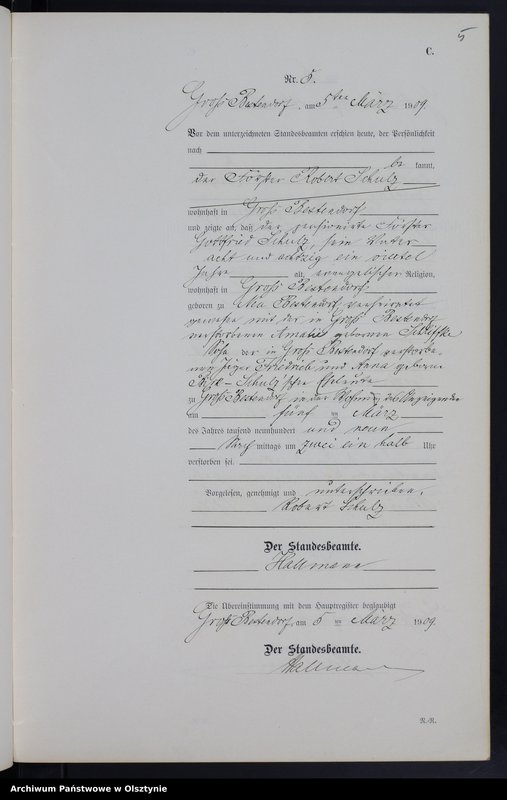 5
C.
Nr. 5.
Groß Bestendorf, am 5ten März 1909.
Vor dem unterzeichneten Standesbeamten erschien heute, der Persönlichkeit
nach
be kannt,
der Förster Robert Schulz
wohnhaft in Groß Bestendorf
und zeigte an, daß der pensionirte Förster
Gottfried Schulz, sein Vater
acht und achtzig ein viertel
Jahre alt, evangelischer Religion,
wohnhaft in Groß Bestendorf
geboren zu Neu Bestendorf, verheirathet
gewesen mit der in Groß Bestendorf
verstorbenen Amalie geborenen
Sohn der in Groß Bestendorf verstorbe-
nen Jäger Friedrich und Anna geborne
Schulz'schen Eheleute
zu Groß Bestendorf in der Wohnung des Anzeigenden
am fünf ten März
des Jahres tausend neunhundert und neun
Nach mittags um zwei ein halb Uhr
verstorben sei.
Vorgelesen, genehmigt und unterschrieben.
Robert Schulz
Der Standesbeamte.
Hallmann
Die Übereinstimmung mit dem Hauptregister beglaubigt
Groß Bestendorf, am 5 ten März 1909.
Der Standesbeamte.
Hallmann
N.-R.
Archiwum Państwowe w Olsztynie